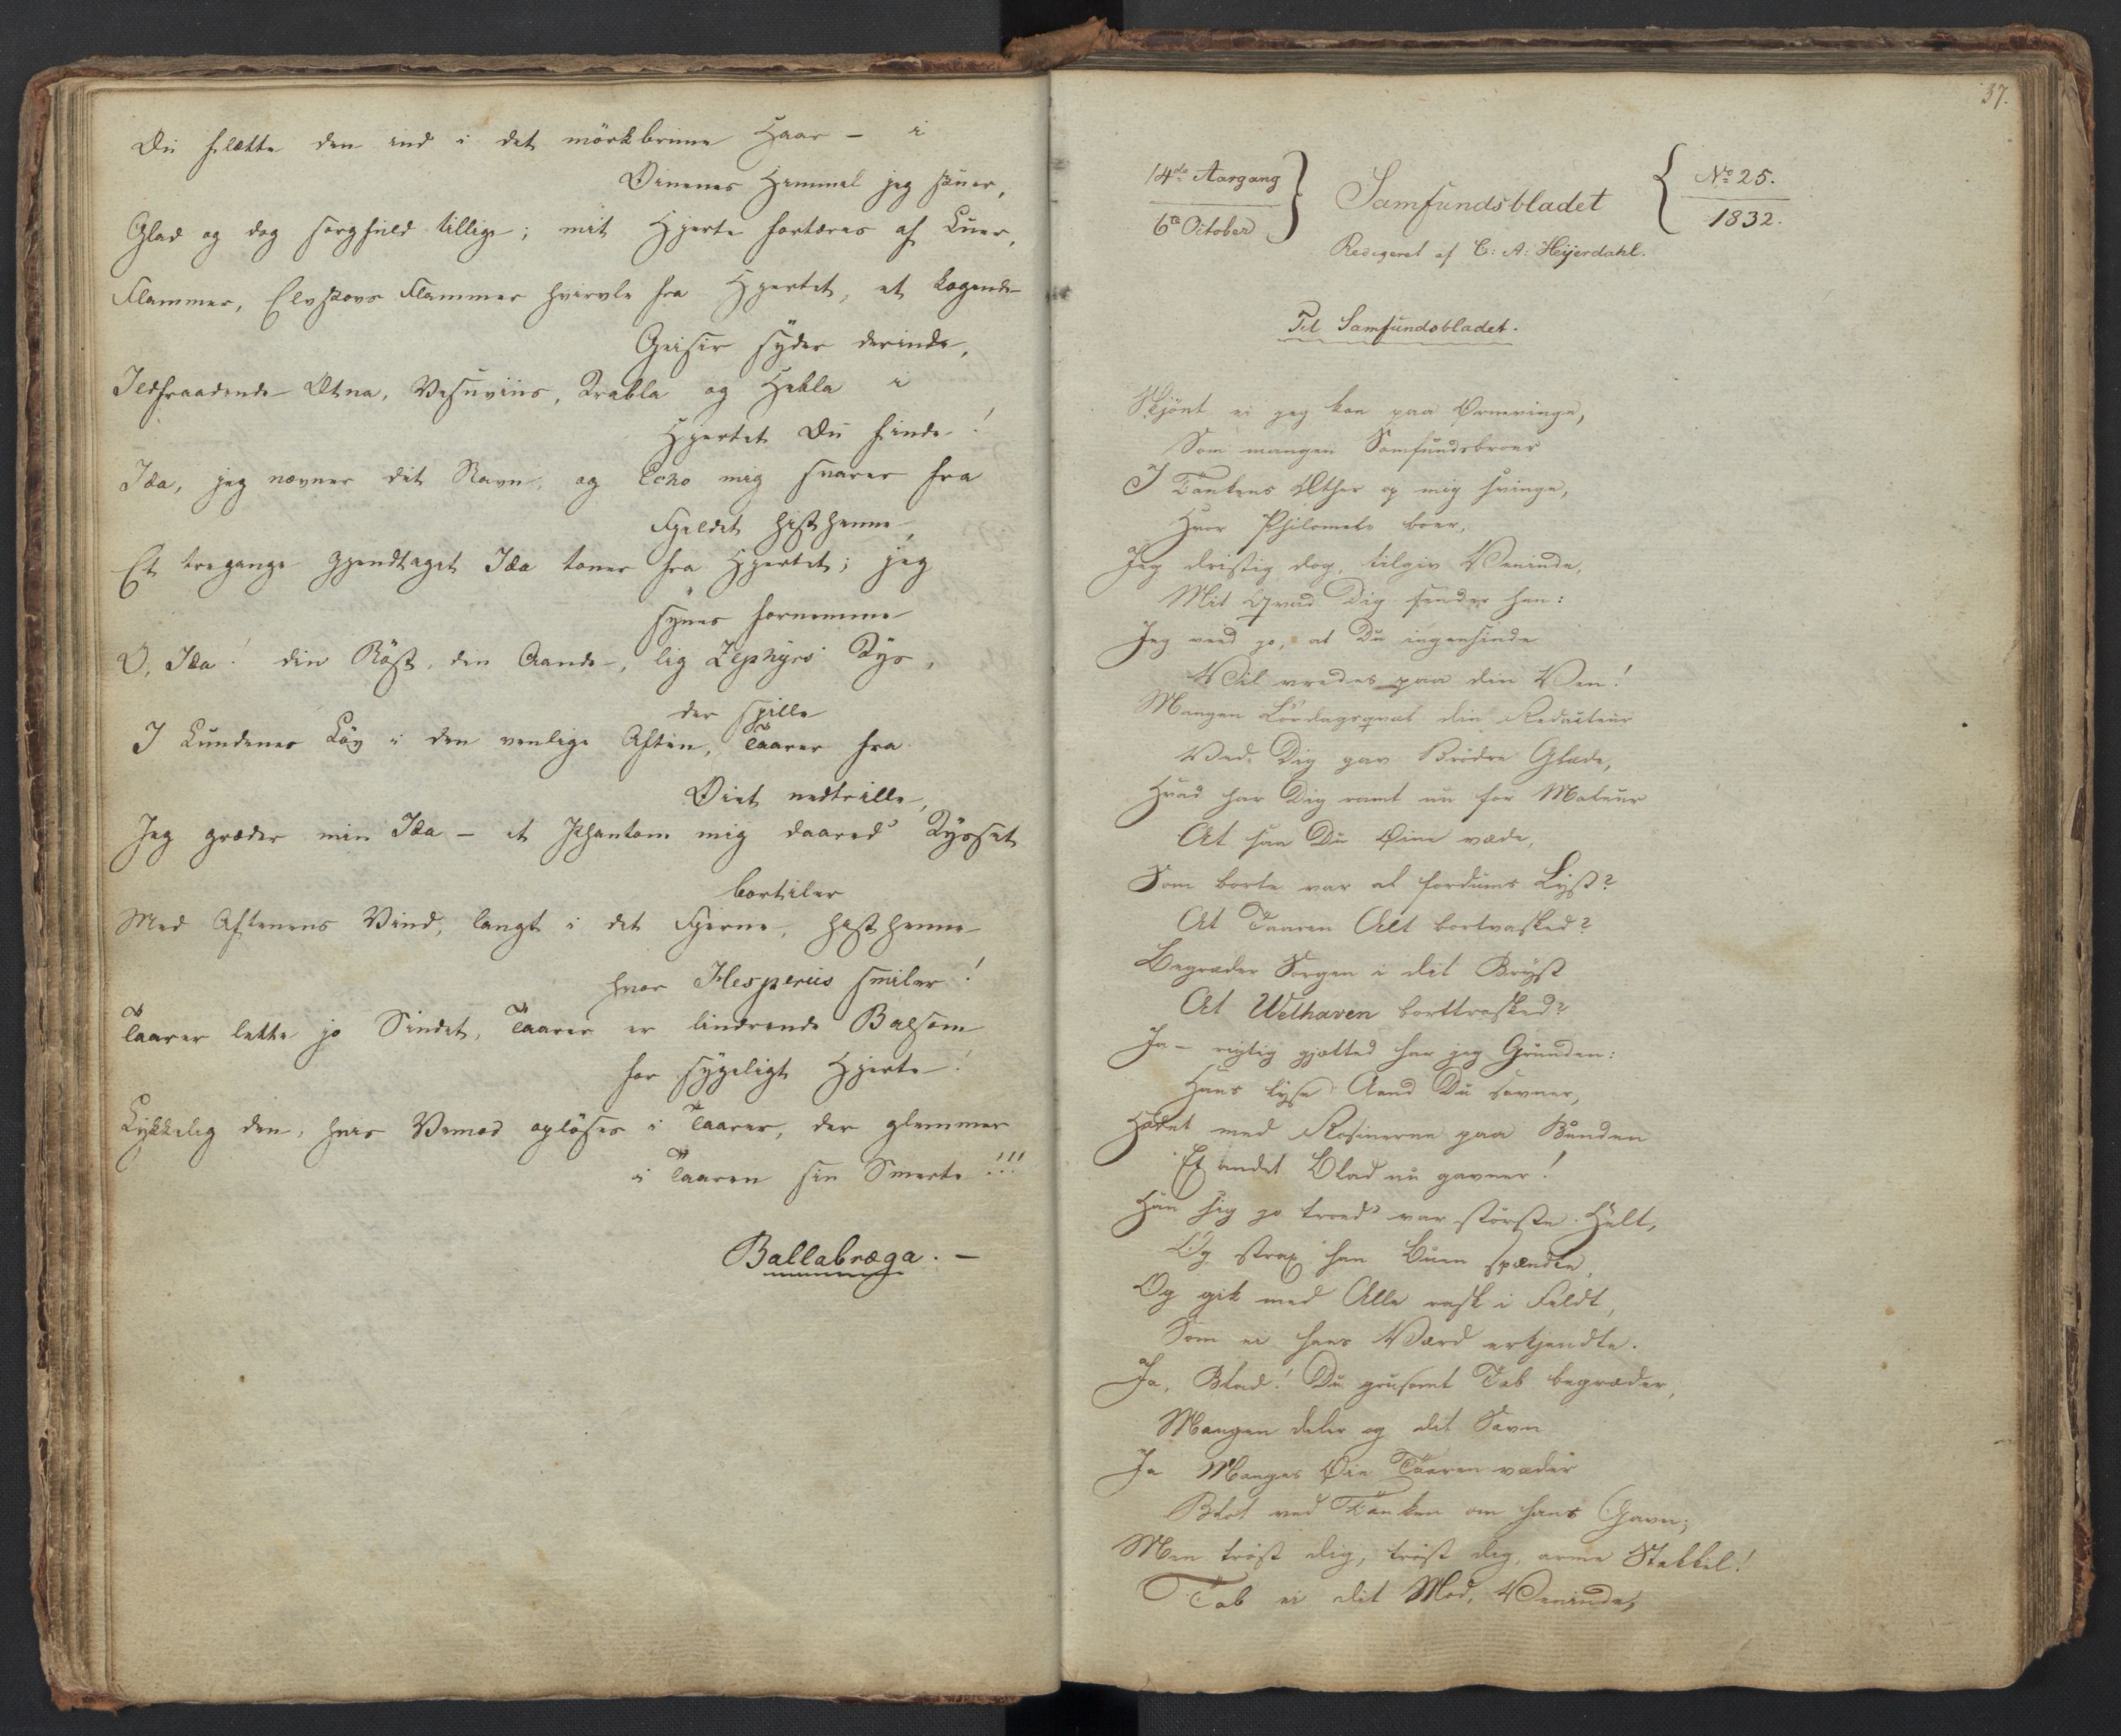 Du flætte den ind i det mörkbrune Haar – i
Øinenes Himmel jeg skuer,
Glad og dog sorgfuld tillige; mit Hjerte fortæres af Luer,
Flammer, Elvskovs Flammer hvirvle fra Hjertet, et kogende
Geisir syder derinde,
Ildfraadende Ætna, Vesuvius, Krabla og Hekla i
Hjertet Du finde!
Ida, jeg nævner dit Navn, og Echo mig svarer fra
Fjeldet histhenne,
Et tregange gjendtaget Ida toner fra Hjertet; jeg
synes fornemme
O, Ida! din Röst, din Aande, lig Zephyrs Kys,
der spille
I Lundenes Löv i den venlige Aften, Taarer fra
Øiet nedtrille,
Jeg græder min Ida – et Phantom mig daared' Kysset
bortiler
Med Aftenens Vind, langt i det Fjerne, histhenne
hvor Hesperus smiler!
Taarer lette jo Sindet, Taarer er lindrende Balsom
for sygeligt Hjerte!
Lykkelig den, hvis Vemod oplöses i Taarer, der glemmer
i Taaren sin Smerte!!!
Ballabræga. –
37.
14de Aargang
6te October
Samfundsbladet
No 25.
1832.
Redigeret af C: A: Heijerdahl.
Til Samfundsbladet.
Skjönt ei jeg kan paa Ørnevinge,
Som mangen Samfundsbroer
I Tankens Æther op mig svinge,
Hvor Philomele boer,
Jeg dristig dog, tilgiv Veninde,
Mit Qvad Dig sender hen:
Jeg veed jo, at Du ingensinde
Vil vredes paa din Ven!
Mangen Lördagsqvæl din Redacteur
Ved Dig gav Brödre Glæde,
Hvad har Dig ramt nu for Maleur
At saa Du Øine væde,
Som borte var al fordums Lyst?
At Taaren Alt bortvasked?
Begræder Sorgen i dit Bryst
At Welhaven borttrasked?
Ja – rigtig gjætted har jeg Grunden:
Hans lyse Aand Du savner,
Hædet med Rosinerne paa Bunden
Et andet Blad nu gavner!
Han sig jo troed' var störste Helt,
Og strax han Buen spændte,
Og gik med Alle rask i Feldt,
Som ei hans Værd erkjendte.
Ja, Blad! Du grusomt Tab begræder,
Mangen deler og dit Savn
Ja Manges Øie Taaren væder
Blot ved Tanken om hans Gavn;
Men tröst dig, tröst dig, arme Stakkel!
Tab ei dit Mod, Veninde,